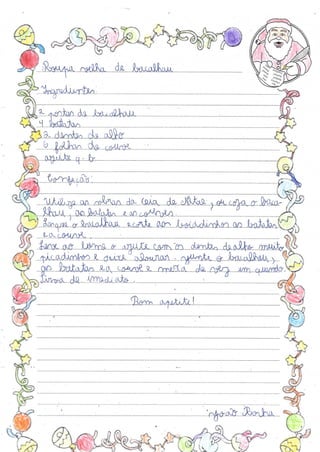 Roupa velha de bacalhau
Ingredientes
2 postas de bacalhau
4 batatas
3 dentes de alho
6 folhas de couve
azeite q. b.
Confeção:
Utilize as sobras da ceia de Natal, ou coza o baca-
lhau, as batatas e as couves.
Limpe o bacalhau e corte aos bocadinhos as batatas
e a couve.
Leve ao lume o azeite com os dentes de alho muito
picadinhos e deixe alourar. Junte o bacalhau,
as batatas e a couve e mexa de vez em quando.
Sirva de imediato.
Bom apetite!
João Rocha